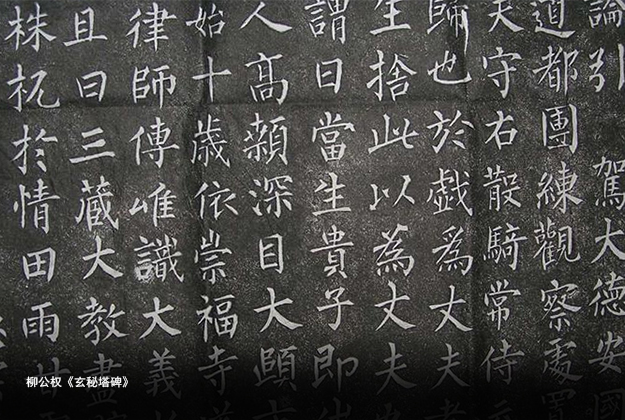 論引 駕大德安
道都團練觀察處
夫守右散騎常侍
歸也於戲為丈夫
生捨此以為丈夫
謂曰當生貴子即
人高顙深目大頤
始十歲依崇福寺
律師傳唯識大義
且曰三藏大教盡
株杌於情田雨
柳公权《玄秘塔碑》